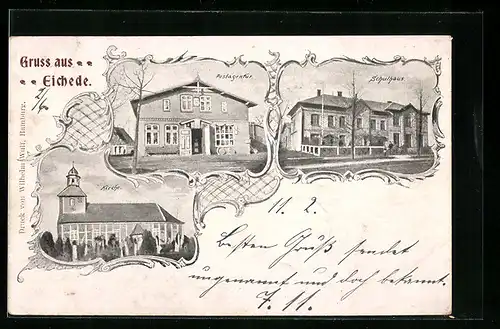 Gruss aus
Eichede.
2/6
Postagentur.
Schulhaus
Kirche.
Druck von Wilhelm Wolf, Hamburg.
11. 2.
Besten Gruß sendet
ungenannt und doch bekannt.
F. M.